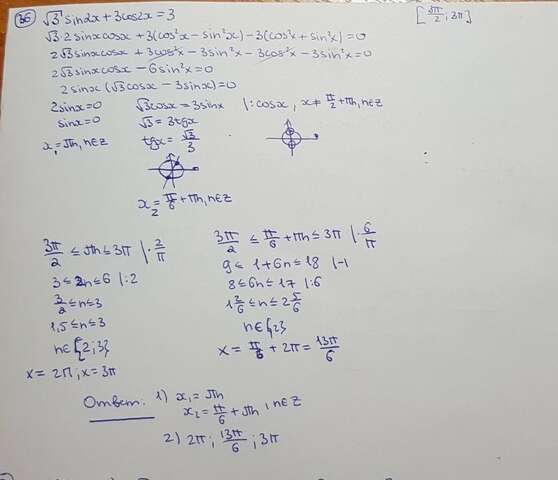 36 √3 sin2x + 3cos2x = 3 [3π/2 ; 3π]
√3·2sinxcosx + 3(cos²x − sin²x) − 3(cos²x + sin²x) = 0
2√3 sinxcosx + 3cos²x − 3sin²x − 3cos²x − 3sin²x = 0
2√3 sinxcosx − 6sin²x = 0
2sinx (√3cosx − 3sinx) = 0
2sinx = 0 √3cosx = 3sinx |:cosx, x ≠ π/2 + πn, n∈Z
sinx = 0 √3 = 3tgx
x₁ = πn, n∈Z tgx = √3/3
x₂ = π/6 + πn, n∈Z
3π/2 ≤ πn ≤ 3π |·2/π 3π/2 ≤ π/6 + πn ≤ 3π |·6/π
3 ≤ 2n ≤ 6 |:2 9 ≤ 1 + 6n ≤ 18 |−1
3/2 ≤ n ≤ 3 8 ≤ 6n ≤ 17 |:6
1,5 ≤ n ≤ 3 1 2/6 ≤ n ≤ 2 5/6
n∈{2;3} n∈{2}
x = 2π; x = 3π x = π/6 + 2π = 13π/6
Ответ: 1) x₁ = πn
x₂ = π/6 + πn, n∈Z
2) 2π; 13π/6; 3π